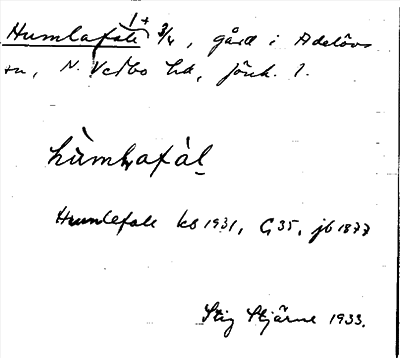 Humlafall 1+ 3/4, gård i Adelövs
sn, N. Vedbo hd, Jönk. l.
hùmlafàl
Humlefall kb 1931, G 35, jb 1877
Stig Stjärne 1933.